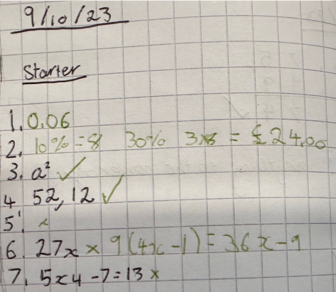 9/10/23
Starter
1. 0.06
2. 10% = 8 30% 3x8 = £24.00
3. a² ✓
4 52, 12 ✓
5. x
6. 27x x 9(4x-1) = 36x-9
7. 5x4-7=13 x